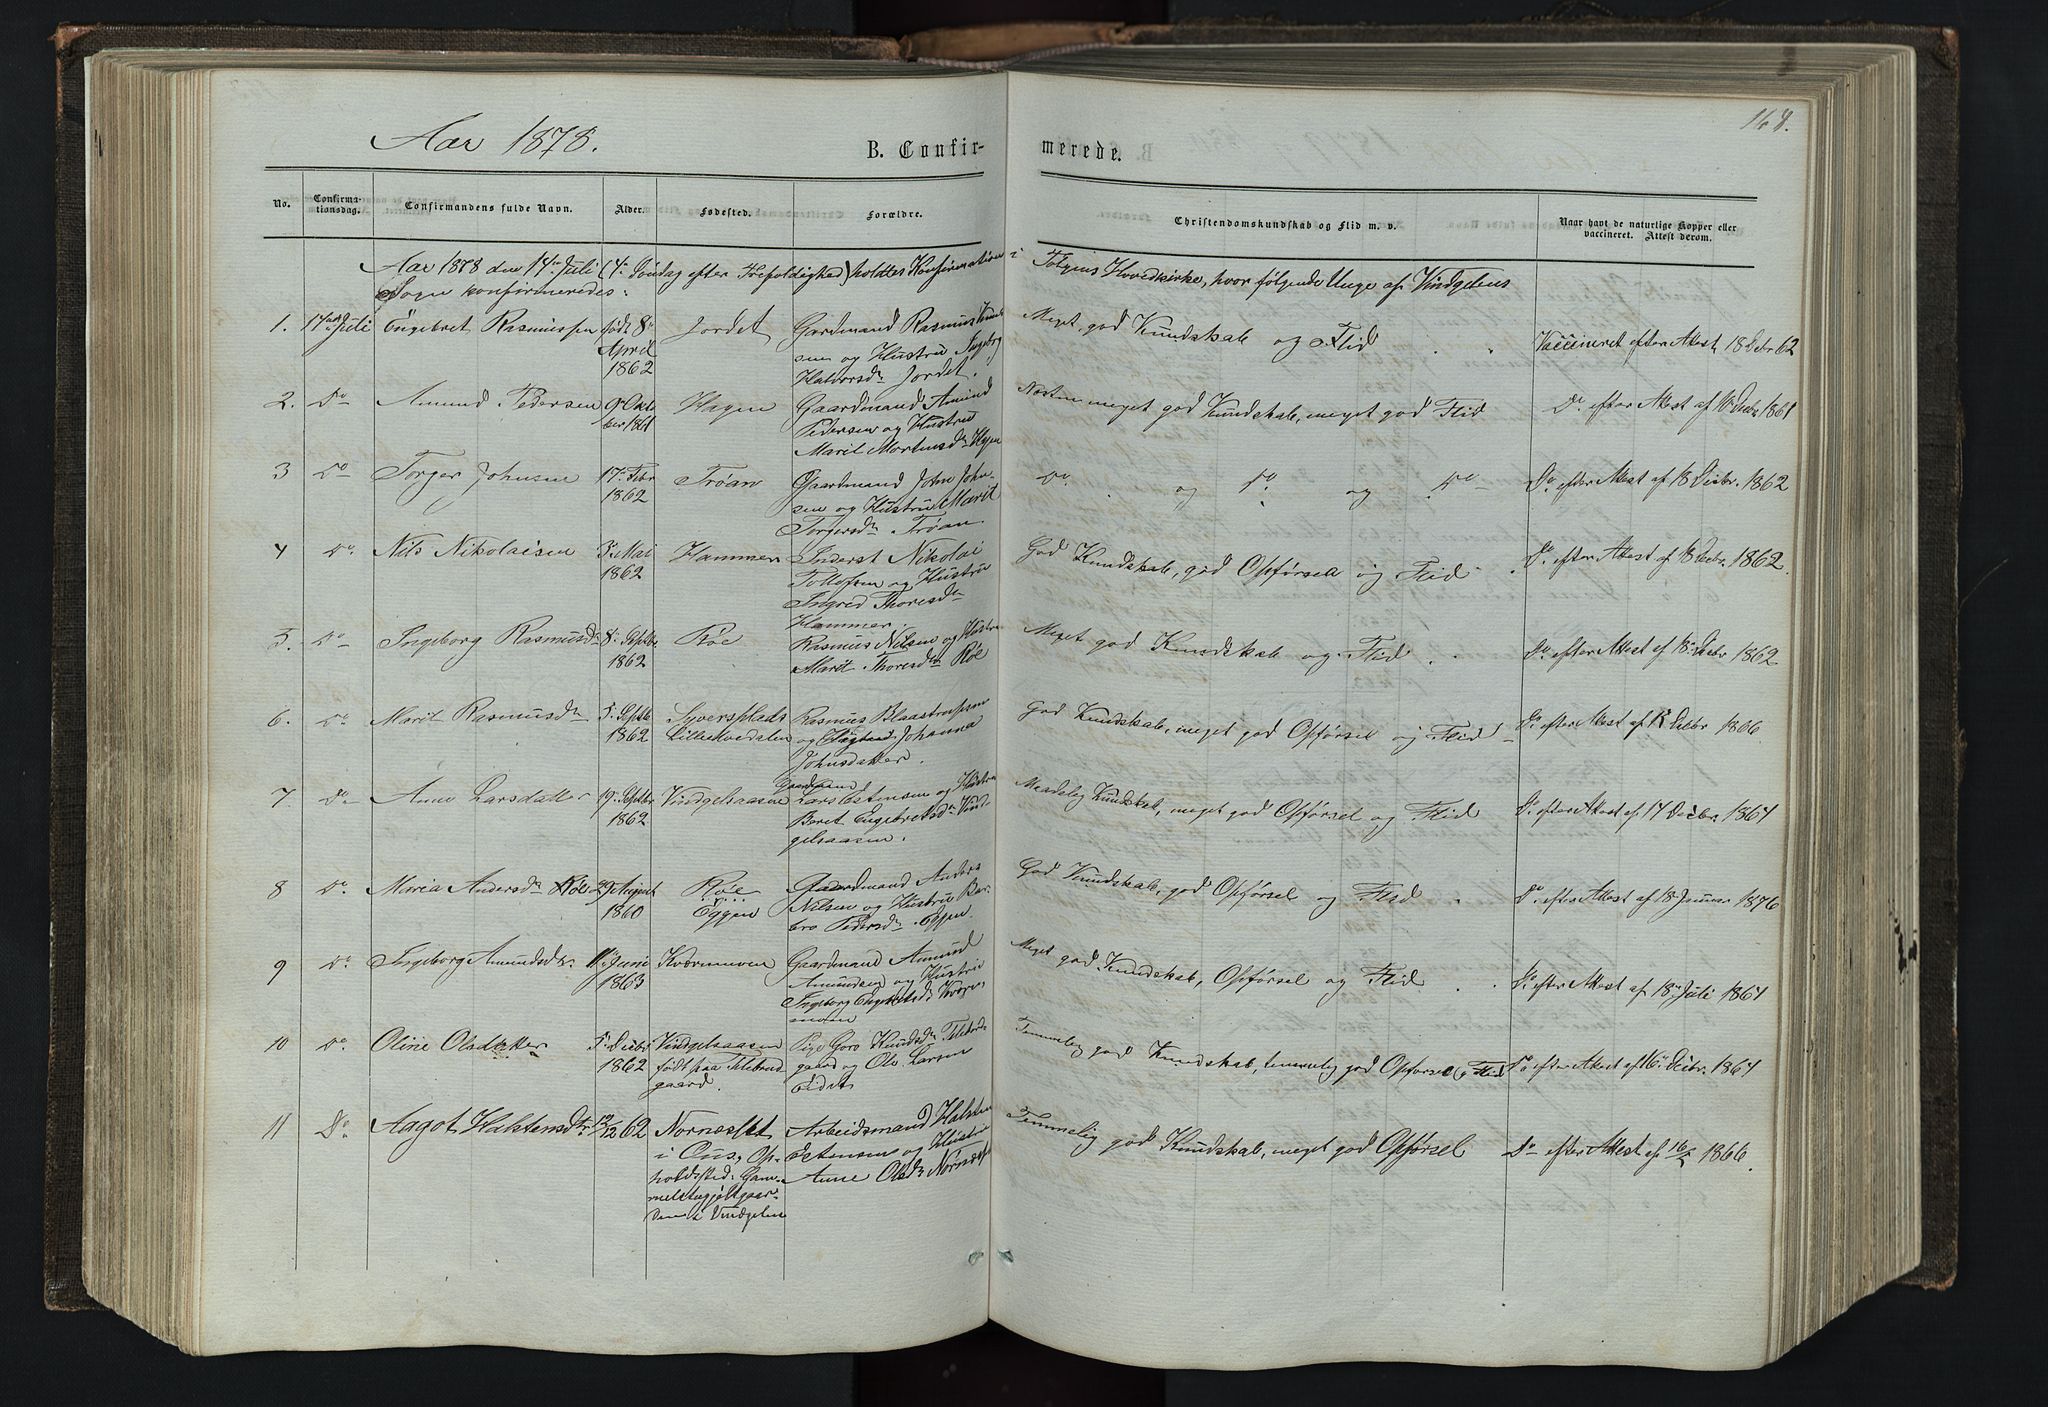 168.
Aar 1878.
B. Confir- merede.
No.
Confirma-
tionsdag.
Confirmandens fulde Navn.
Alder.
Fødested.
Forældre.
Christendomskundskab og Flid m. v.
Naar havt de naturlige Kopper eller
vaccineret. Attest derom.
Aar 1878 den 14de Juli (4de Søndag efter Trefoldighed) holdtes Konfirmation i Tolgens Hovedkirke, hvor følgende Unge af Vindgelens
Sogn konfirmeredes:
1. Juli Engebret Rasmussen født 8de Jordet Gardmand Rasmus Meget god Kundskab og Flid Vaccineret efter Attest 18 Debr 62
April sen og Hustru Ingebrg
1862 Halvorsdr Jordet.
2. Do Amund Pedersen 9de Okto Hagen Gaardmand Amund Næsten meget god Kundskab, meget god Flid Do efter Attest af Debr 1861
ber 1861 Pedersen og Hustru
Marit Mortensdr Hagen
3 Do Torger Johnsen 17de Febr Trøan Gaardmand John John- Do og Do og Do Do efter Attest af 18 Debr. 1862
1862 sen og Hustru Marit
Torgersdr Trøan
4 Do Nils Nikolaisen 3de Mai Hammer Inderst Nikolai God Kundskab, god Opførsel og Flid Do efter Attest af 18 Debr. 1862.
1862 Tollefsen og Hustru
Ingrid Thoresdr
Hammer.
5. Do Ingeborg Rasmusdr 8de Septbr Røe Rasmus Nilsen og Hustru Meget god Kundskab og Flid Do efter Attest af 18de Debr 1862
1862 Marit Thoresdr Røe
6. Do Marit Rasmusdr 5. Septb Syversplads Rasmus God Kundskab, meget god Opførsel og Flid Do efter Attest af Debr 1866
1862 Lille Kvedalen og Johanna
Johnsdatter.
Gaardmand
7. Do Anne Larsdatter 19de Septbr Vindgelsaasen Lars Estensen og Hustru Maadelig Kundskab, meget god Opførsel og Flid Do efter Attest af 14 Debr. 1864
1862 Beret Engebretsdr Vind-
gelsaasen.
8 Do Maria Andersdr 29 August Røe Gaardmand Anders God Kundskab, god Opførsel og Flid Do efter Attest af 18 Januar 1876
1860 Eggen Nilsen og Hustru Bar-
bro Pedersdr Eggen.
9 Do Ingeborg Amundsdr. Juni Kværnmoen Gaardmand Amund Meget god Kundskab, Opførsel og Flid Do efter Attest af 18de Juli 1864
1863 Amundsen og Hustru
Ingeborg Engebretsdr Kværn-
moen
10 Do Oline Olsdatter 5. Debr Vindgelsaasen Pige Goro Knudsdr Temmelig god Kundskab, temmelig god Opførsel og Flid Do efter Attest af 16de Debr. 1864
1862 født paa gaard og Ole Larsen
gaard. Odden
11 Do Aagot Halstensdtr. 12/12 62 Nornæsset Arbeidsmand Halsten Temmelig god Kundskab, meget god Opførsel Do efter Attest af 16/ 1866.
i Ous, Op- Estensen og Hustru
holdssted: Gam- Anne Olsdr Nornæsset
melstugjeltgaar-
den i Vindgelen